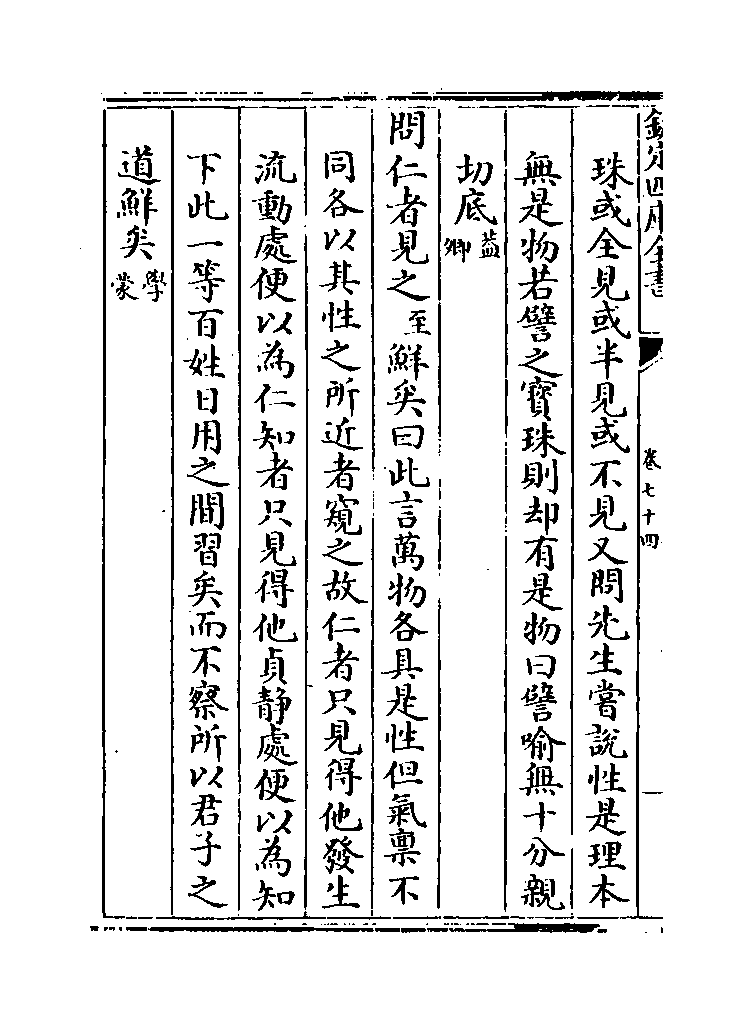 欽定四庫全書
卷七十四
珠或全見或半見或不見又問先生嘗說性是理本
無是物若譬之寶珠則却有是物曰譬喻無十分親
切底益卿
問仁者見之至鮮矣曰此言萬物各具是性但氣稟不
同各以其性之所近者窺之故仁者只見得他發生
流動處便以為仁知者只見得他貞靜處便以為知
下此一等百姓日用之間習矣而不察所以君子之
道鮮矣學蒙